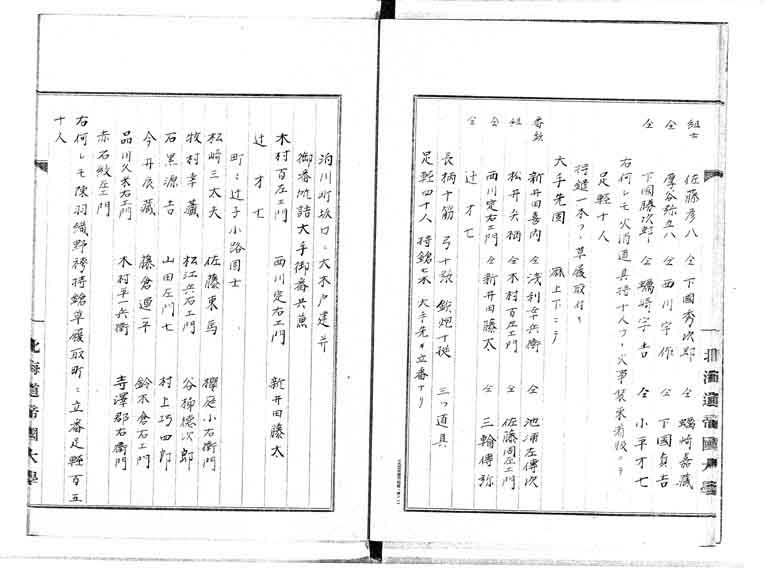 組士 佐藤彦八 仝 下國秀次郎 仝 蠣崎嘉蔵
仝 厚谷弥五八 仝 西川宇作 仝 下國貞吉
仝 下國勝次郎 仝 蠣崎宇吉 仝 小平才七
右何レモ火消道具持十人ツヽ火事装束着股ニテ
足軽十人
持鎗一本ツヽ草履取付
大手先固 麻上下ニテ
番頭 新井田喜内 仝 浅利幸兵衛 仝 池浦左傳次
組 松井矢柄 仝 木村百左エ門 仝 佐藤岡左エ門
仝 西川定右エ門 仝 新井田藤太 仝 三輪傳弥
仝 辻才七
長柄十筋 弓十張 鉄炮十挺 三ツ道具
足軽四十人 持鎗七本 大手先キ立番ナリ
泊川町坂口ニ大木戸建并
御番所詰大手御番共兼
木村百左エ門 西川定右エ門 新井田藤太
辻才七
町ニ辻子小路固士
松崎三太夫 佐藤東馬 櫻庭小右衛門
牧村幸蔵 松江兵右エ門 谷梯徳次郎
石黒源吉 山田左門七 村上巧四郎
今井辰蔵 藤倉運平 鈴木倉右エ門
品川久米右エ門 木村平一兵衛 寺澤郡右衛門
赤石紋左エ門
右何レモ陳羽織野袴持鎗草履取町ニ立番足軽百五
十人
北海道帝國大學
北海道帝國大學